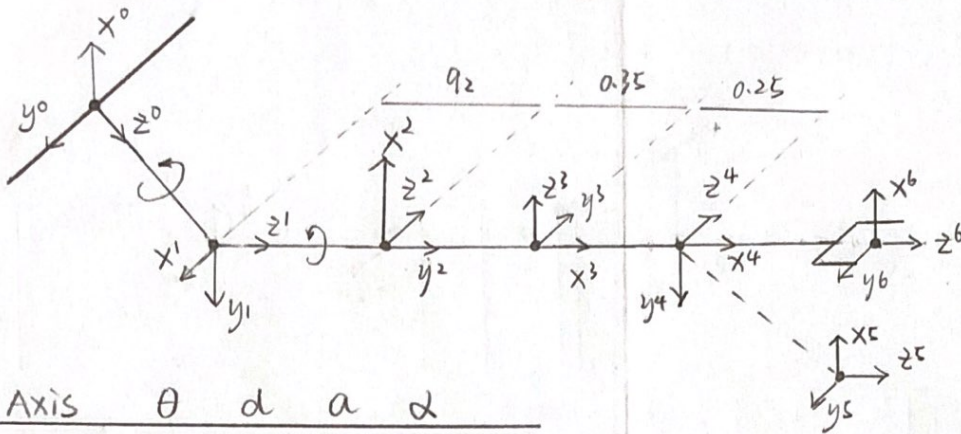 x⁰
y⁰
z⁰
q₂ 0.35 0.25
x²
z²
z³ y³
z⁴
x⁶
x¹ z¹
y₁
y²
x³
x4
y4
y6
z⁶
x5
z⁵
y5
Axis θ d a α